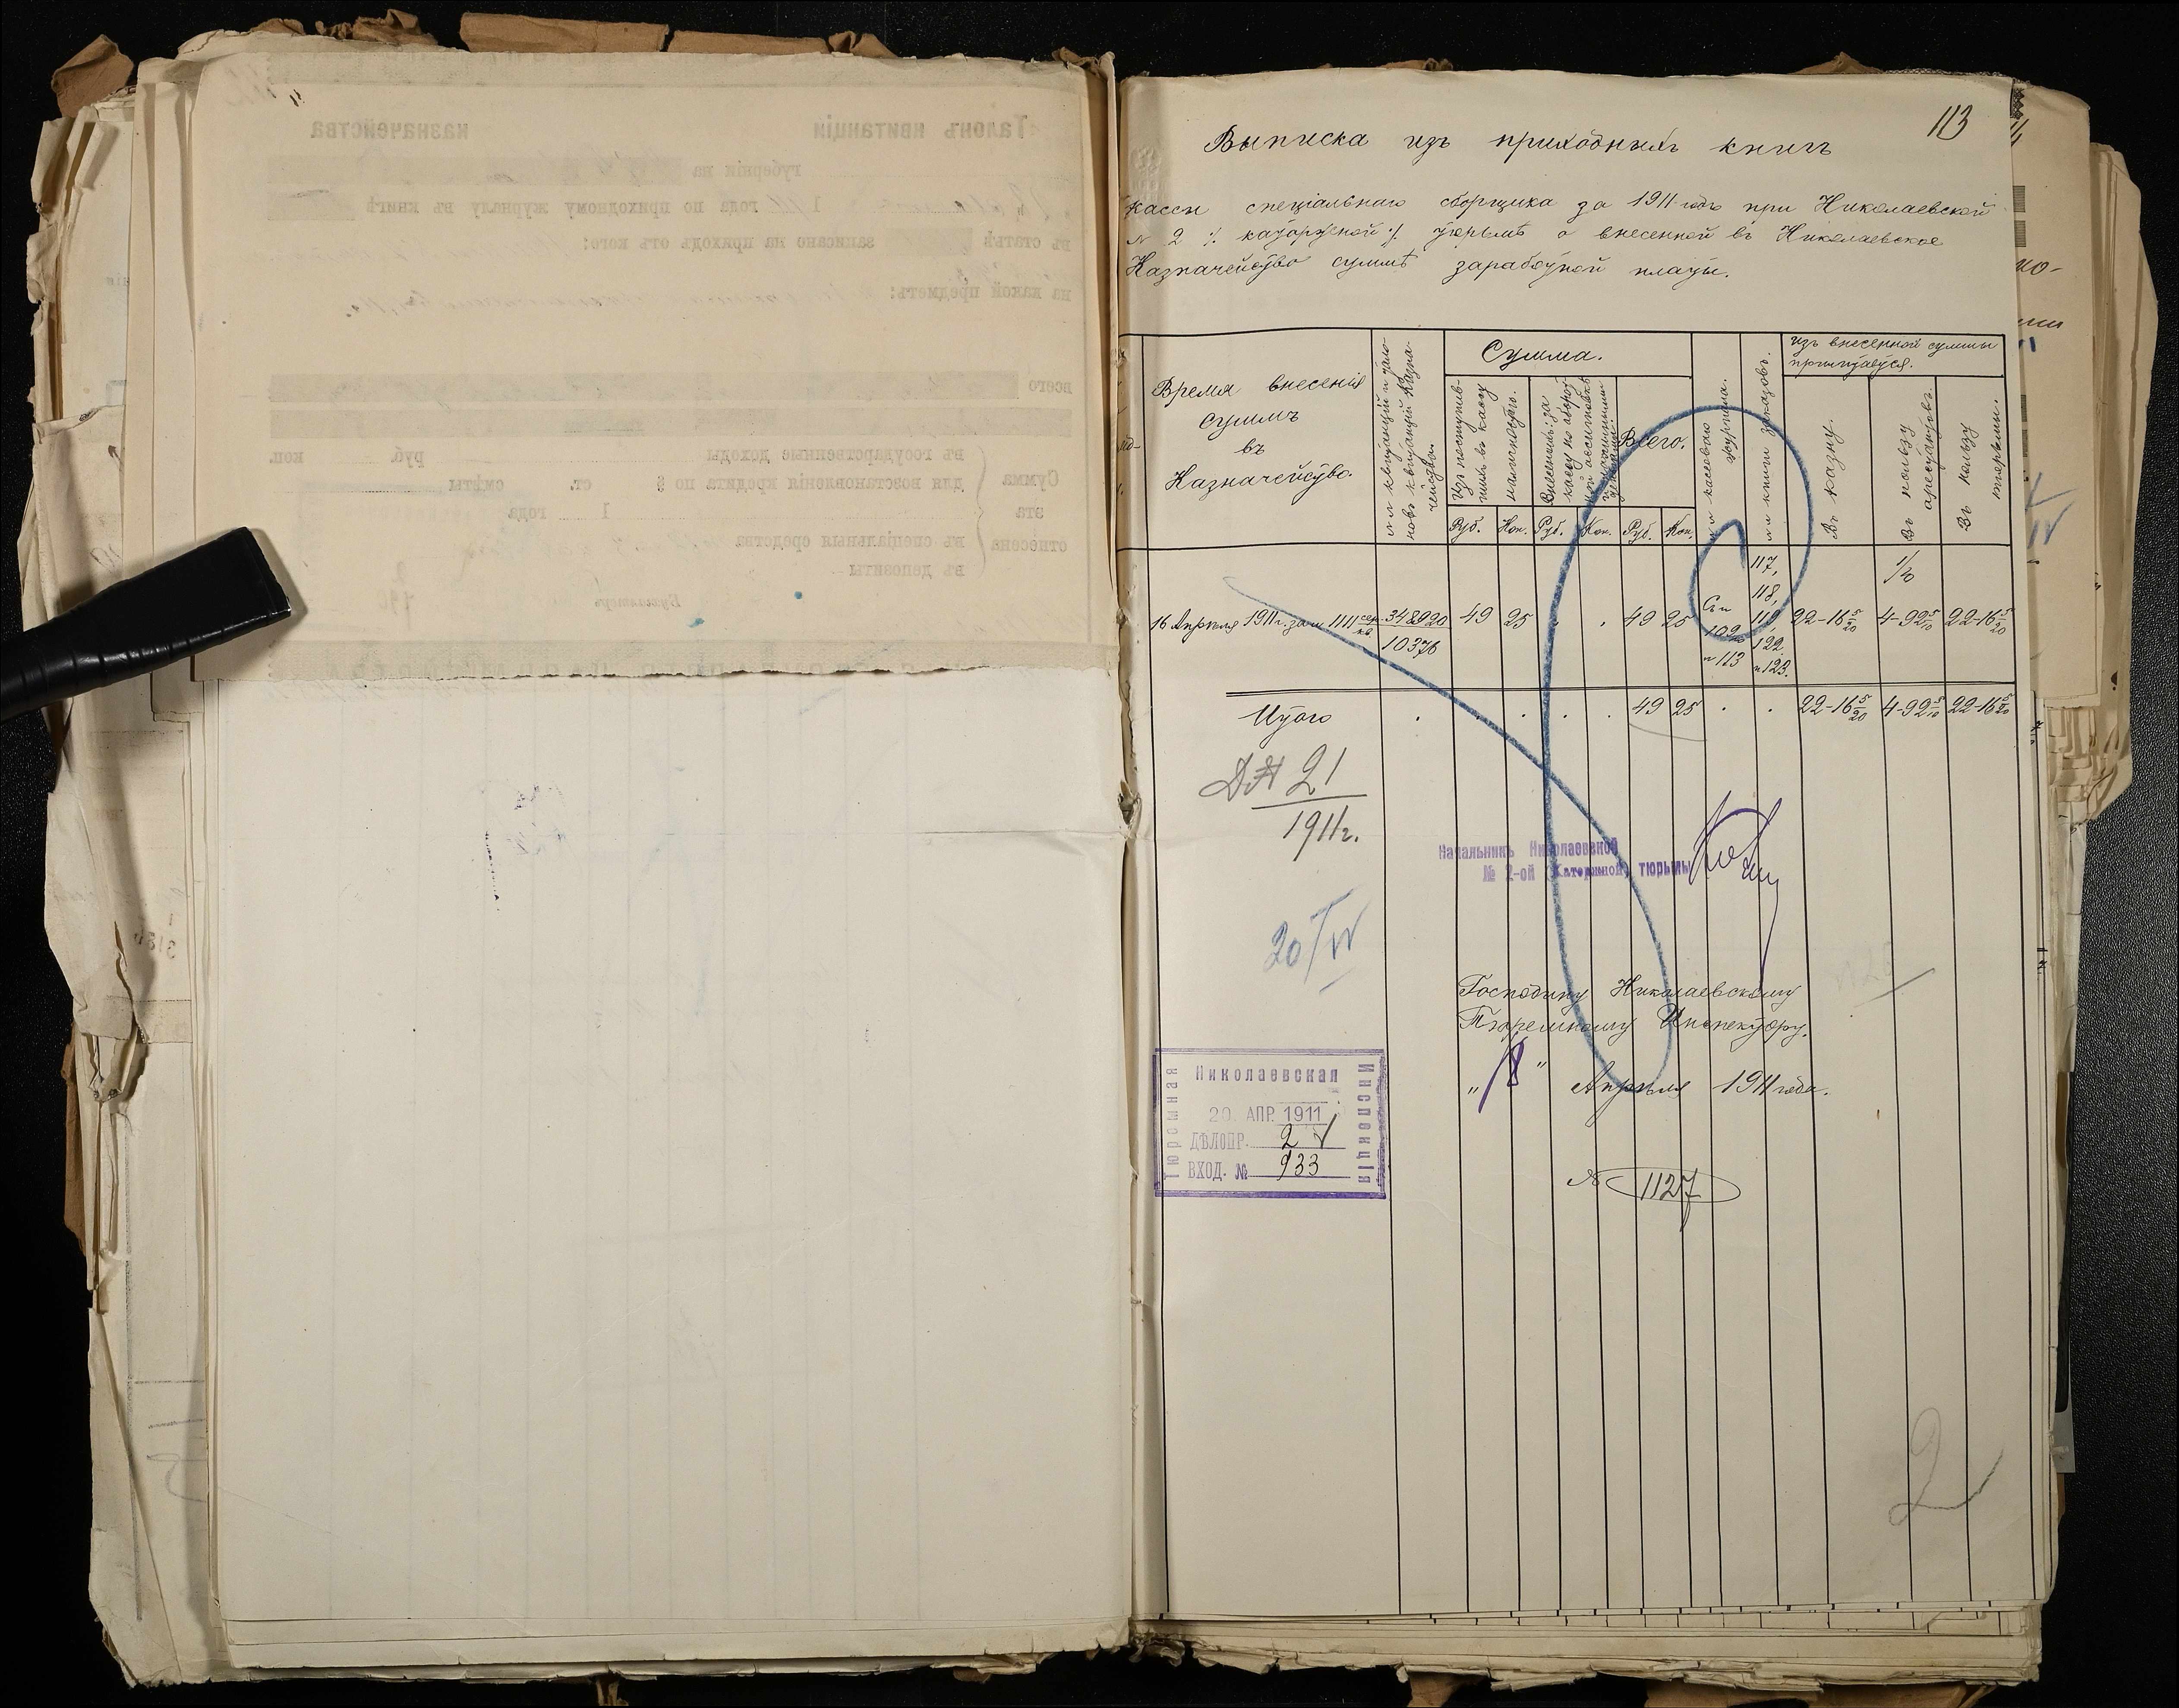 113
Выписка изъ приходныхъ книгъ
Кассы спеціальнаго сборщика за 1911 годъ при Николаевской
№ 2 ./. каторжной ./. тюрьмѣ о внесенной въ Николаевское
Казначейство суммѣ заработной платы.
Время внесенія
суммъ
въ
Казначейство
№№ квитанцій и тало-
новъ квитанцій Казна-
чейства.
Сумма.
Изъ поступив-
шихъ въ кассу
наличностью.
Внесенныхъ за
кассу по
ассигновкѣ
Всего.
Руб. Коп. Руб. Коп. Руб. Коп.
№№ кассоваго
журнала.
№№ книги заказовъ.
Изъ внесенной суммы
причитается.
Въ казну.
Въ пользу
арестантовъ.
Въ пользу
тюрьмы.
1/10
16 Апрѣля 1911 г. за № 1111 348920 49 25 . . 49 25 22-16 5/20 4-92 5/10 22-16 5/20
10376
Ст
109
и 113
117,
118,
119,
122
и 123.
Итого . . . . . 49 25 . . 22-16 5/20 4-92 5/10 22-16 5/20
Д№ 21
1911 г.
Начальникъ Николаевской
№ 2-ой Каторжной тюрьмы
20/IV
Господину Николаевскому
Тюремному Инспектору.
"18" Апрѣля 1911 года.
№ 1127
Николаевская
Тюремная
Инспекція
20. АПР. 1911
ДѢЛОПР. 2
ВХОД. № 933
2
Талонъ квитанціи казначейства
губерніи на
1911 года по приходному журналу въ книгѣ
въ статьѣ записано на приходъ отъ кого:
на какой предметъ:
всего
Сумма эта отнесена
въ государственные доходы руб. коп.
для возстановленія кредита по § ст. смѣты
1 года
въ спеціальныя средства
въ депозиты
Бухгалтеръ